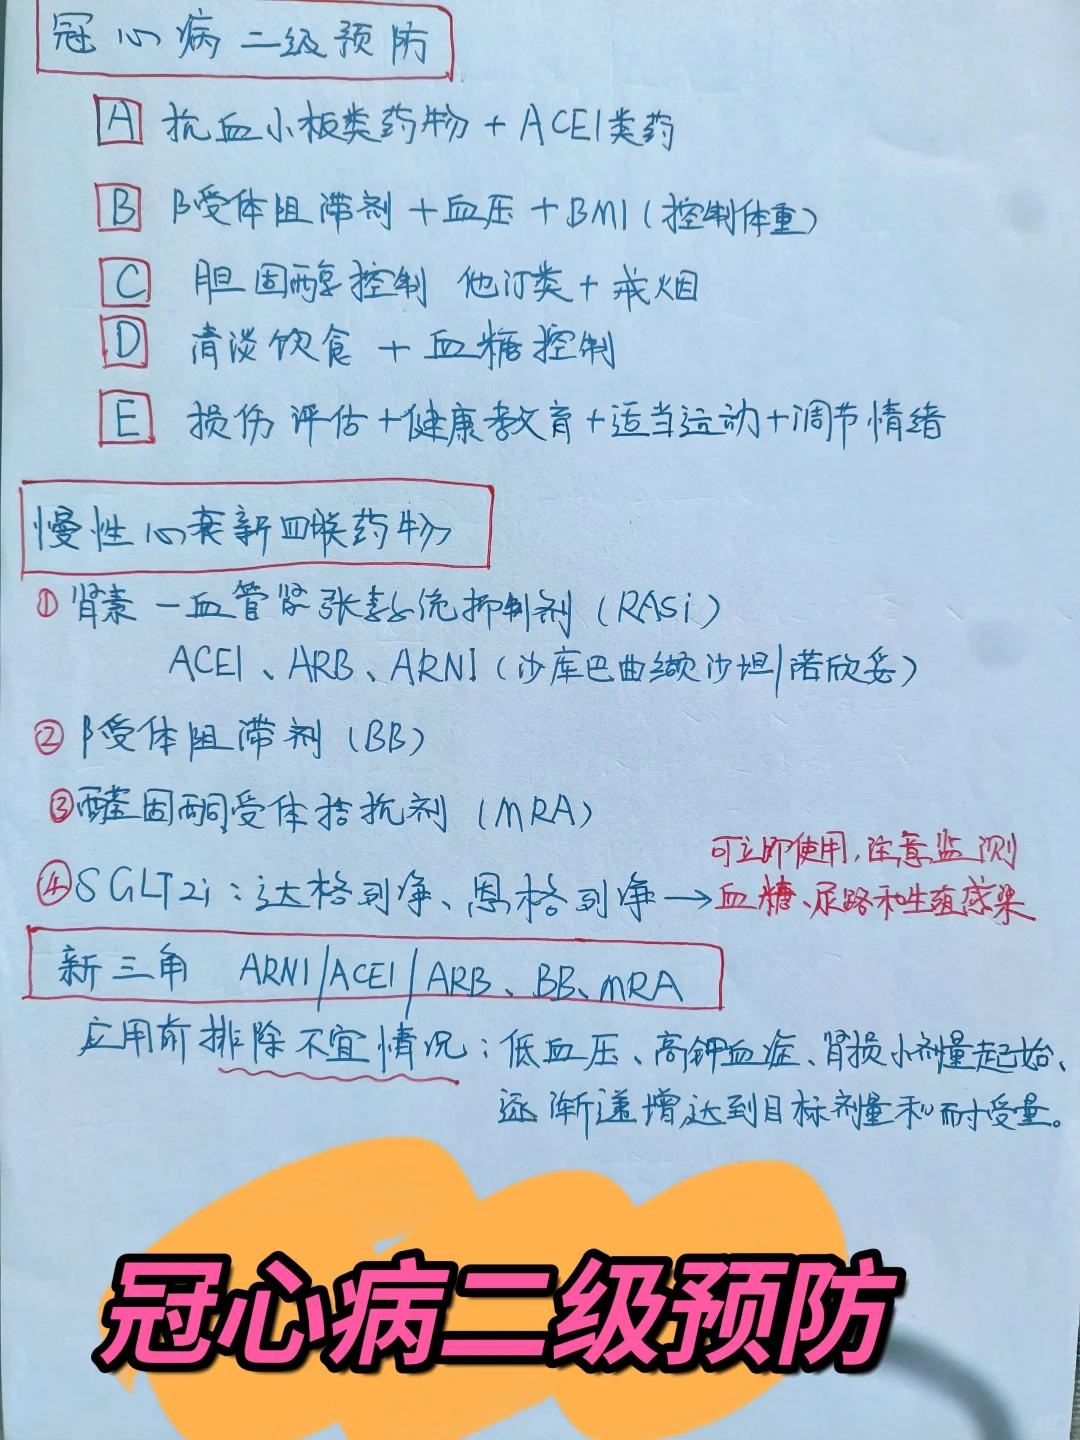 冠心病二级预防
A 抗血小板类药物+ACEI类药
B β受体阻滞剂+血压+BMI(控制体重)
C 胆固醇控制 他汀类+戒烟
D 清淡饮食+血糖控制
E 损伤评估+健康教育+适当运动+调节情绪
慢性心衰新四联药物
① 肾素-血管紧张素系统抑制剂(RASi)
ACEI、ARB、ARNI(沙库巴曲缬沙坦/诺欣妥)
② β受体阻滞剂(BB)
③ 醛固酮受体拮抗剂(MRA)
可立即使用,注意监测
④ SGLT2i:达格列净、恩格列净→血糖、尿路和生殖感染
新三角 ARNI/ACEI/ARB、BB、MRA
应用前排除不宜情况:低血压、高钾血症、肾损小剂量起始、
逐渐递增达到目标剂量和耐受量。
冠心病二级预防